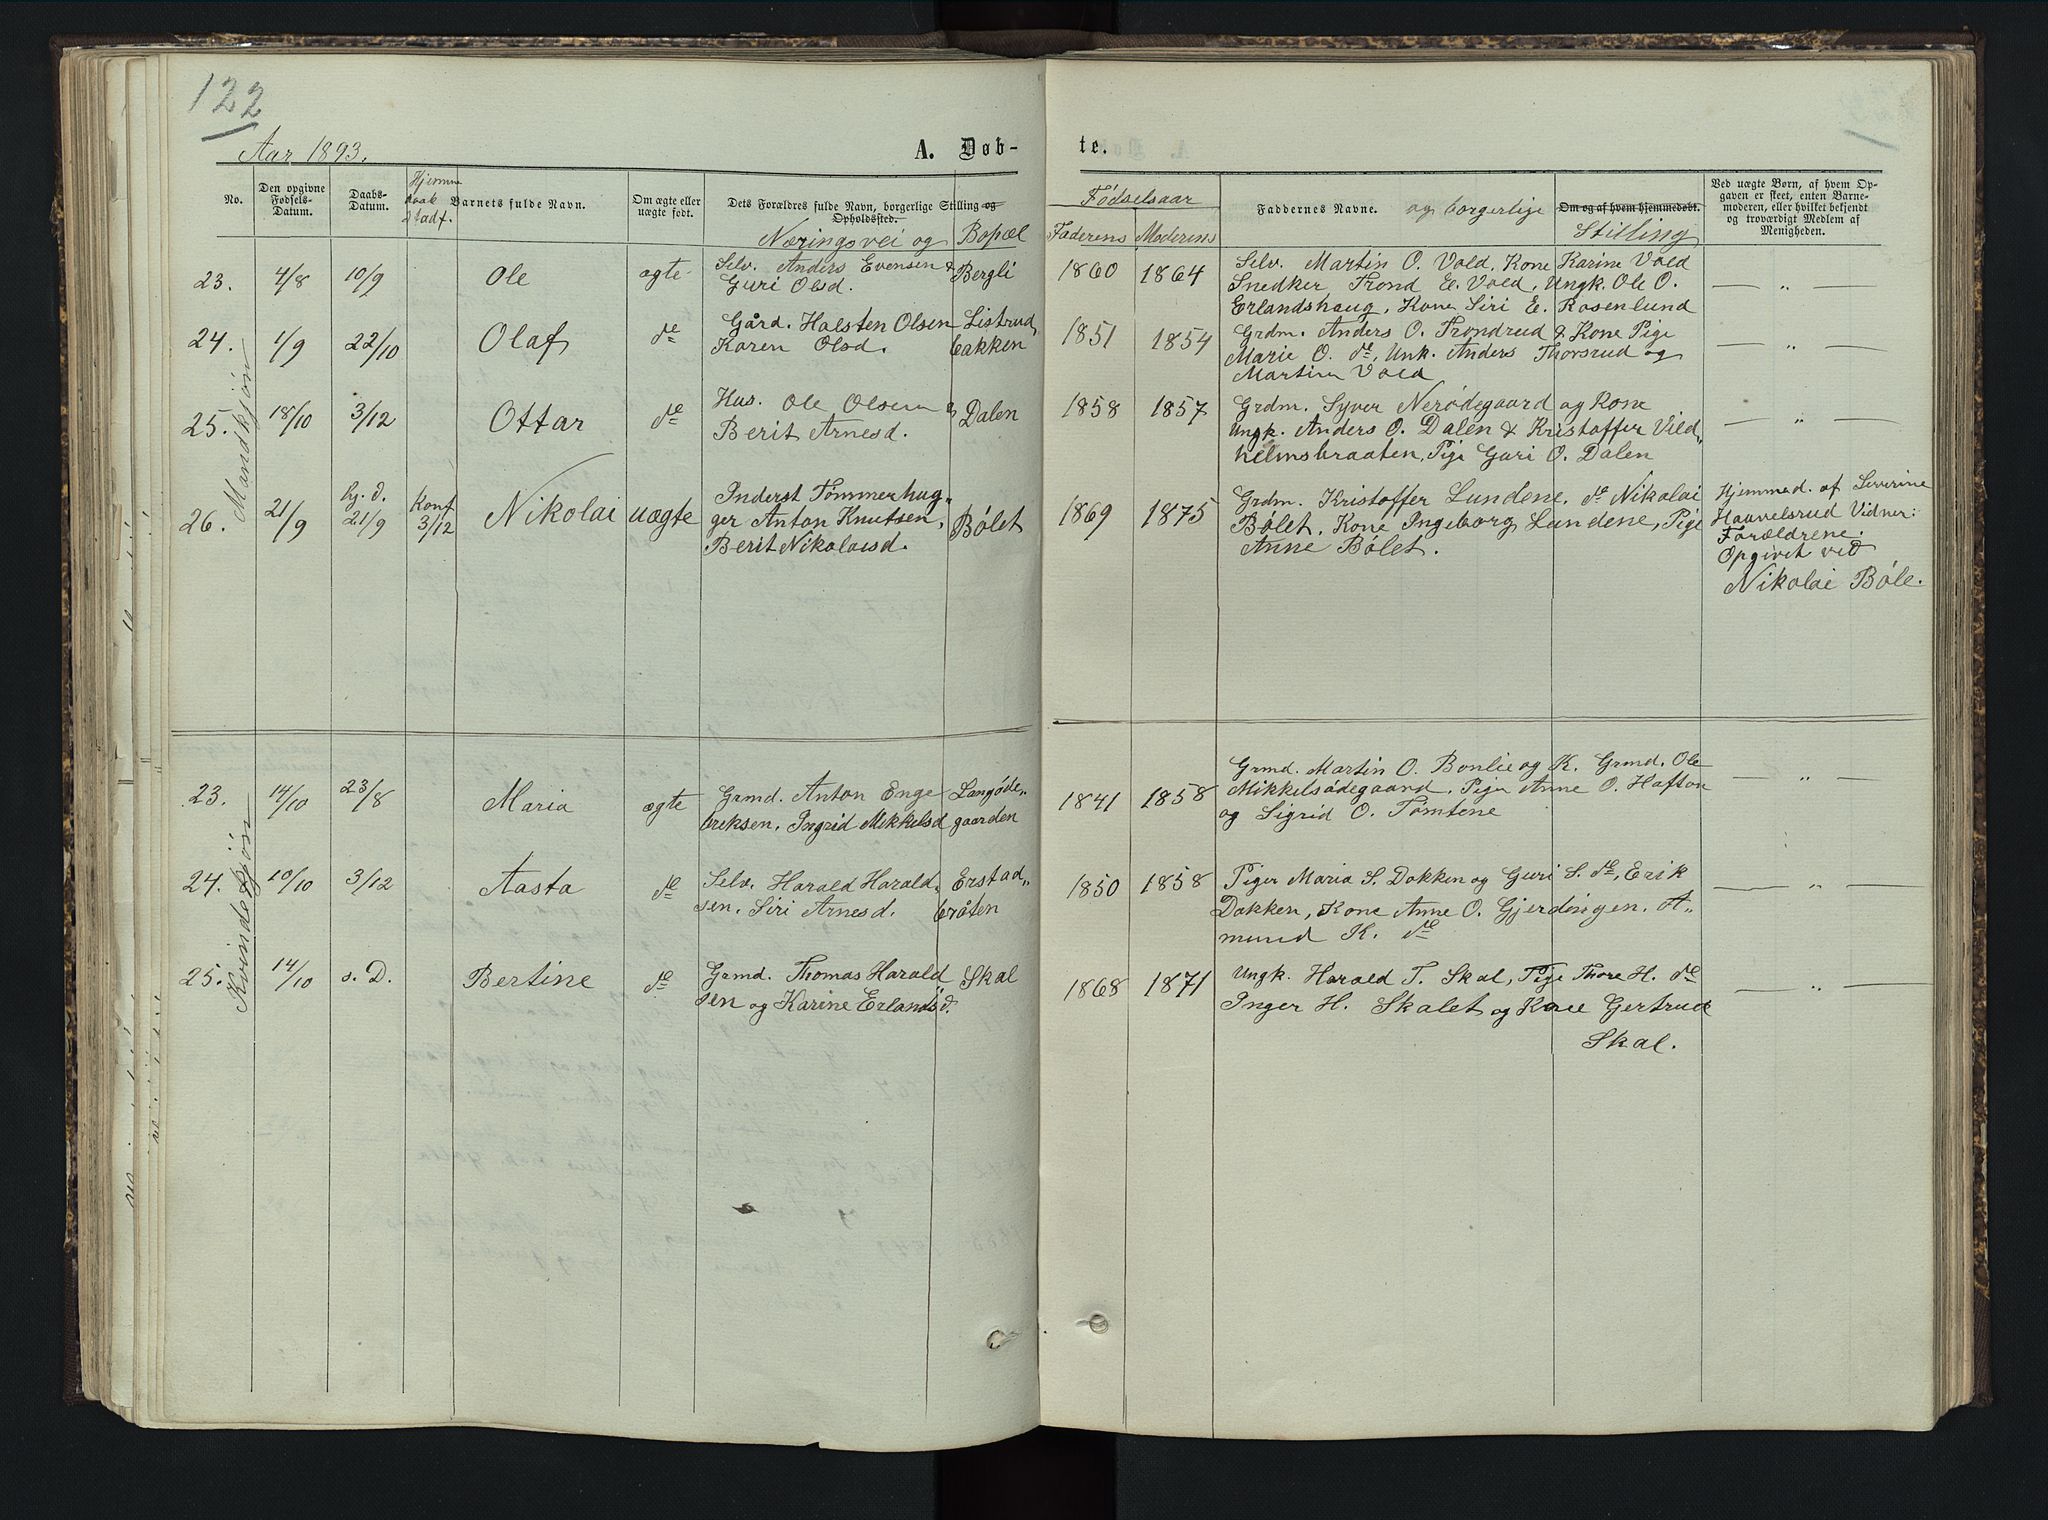 122
Aar 1893.
A. Døb-
te.
No.
Den opgivne
Fødsels-
Datum.
Daabs-
Datum.
Hjemme
daab
Stadf.
Barnets fulde Navn.
Om ægte eller
uægte født.
Dets Forældres fulde Navn, borgerlige Stilling og
Opholdssted.
Næringsvei og Bopæl
Fødselsaar
Faderens Moderens
Faddernes Navne. og borgerlige Om og af hvem hjemmedøbt.
Stilling
Ved uægte Børn, af hvem Op-
gaven er skeet, enten Barne-
moderen, eller hvilket bekjendt
og troværdigt Medlem af
Menigheden.
Mandkjøn
23. 4/8 10/9 Ole ægte Selv. Anders Evensen & Bergli 1860 1864 Selv. Martin O. Vold, Kone Karine Vold — „ —
Guri Olsd. Snedker Trond E. Vold, Ungk. Ole O.
Erlandshaug, Kone Siri E. Rosenlund
24. 1/9 22/10 Olaf do Gård. Halsten Olsen Listrud 1851 1854 Grdm. Anders O. Trondrud & Kone Pige — „ —
Karen Olsd. bakken Marie O. do, Unk. Anders Thorsrud og
Martin Vold
25. 18/10 3/12 Ottar do Hus. Ole Olsen & Dalen 1858 1857 Grdm. Syver Nerødegaard og Kone — „ —
Berit Arnesd. Ungk. Anders O. Dalen & Kristoffer Vild„
helmsbraaten, Pige Guri O. Dalen
26. 21/9 hj. d. 21/9 Konf 3/12 Nikolai uægte Inderst Tømmerhug„ Bølet 1869 1875 Grdm. Kristoffer Lundene, do Nikolai Hjemmed. af Severine
ger Anton Knutsen, Bølet, Kone Ingeborg Lundene, Pige Haavelsrud Vidner:
Berit Nikolaisd. Anne Bølet. Forældrene.
Opgivet ved
Nikolai Bøle.
Kvindekjøn
23. 14/10 23/8 Maria ægte Grmd. Anton Enge Langøde„ 1841 1858 Grmd. Martin O. Bonlie og K. Grmd. Ole — „ —
breksen, Ingrid Mikkelsd gaarden Mikkelsødegaard, Pige Anne O. Hafton
og Sigrid O. Tømtene
24. 10/10 3/12 Aasta do Selv. Harald Harald„ Erstad„ 1850 1858 Piger Maria S. Dokken og Guri S. do, Erik — „ —
sen, Siri Arnesd. bråten Dokken, Kone Anne O. Gjerdingen. A„
mund K. do
25. 14/10 s. D. Bertine do Grmd. Thomas Harald Skal 1868 1871 Ungk. Harald T. Skal, Pige Thore H. do — „ —
sen og Karine Erlandsd. Inger H. Skalet og Kone Gertrud
Skal.